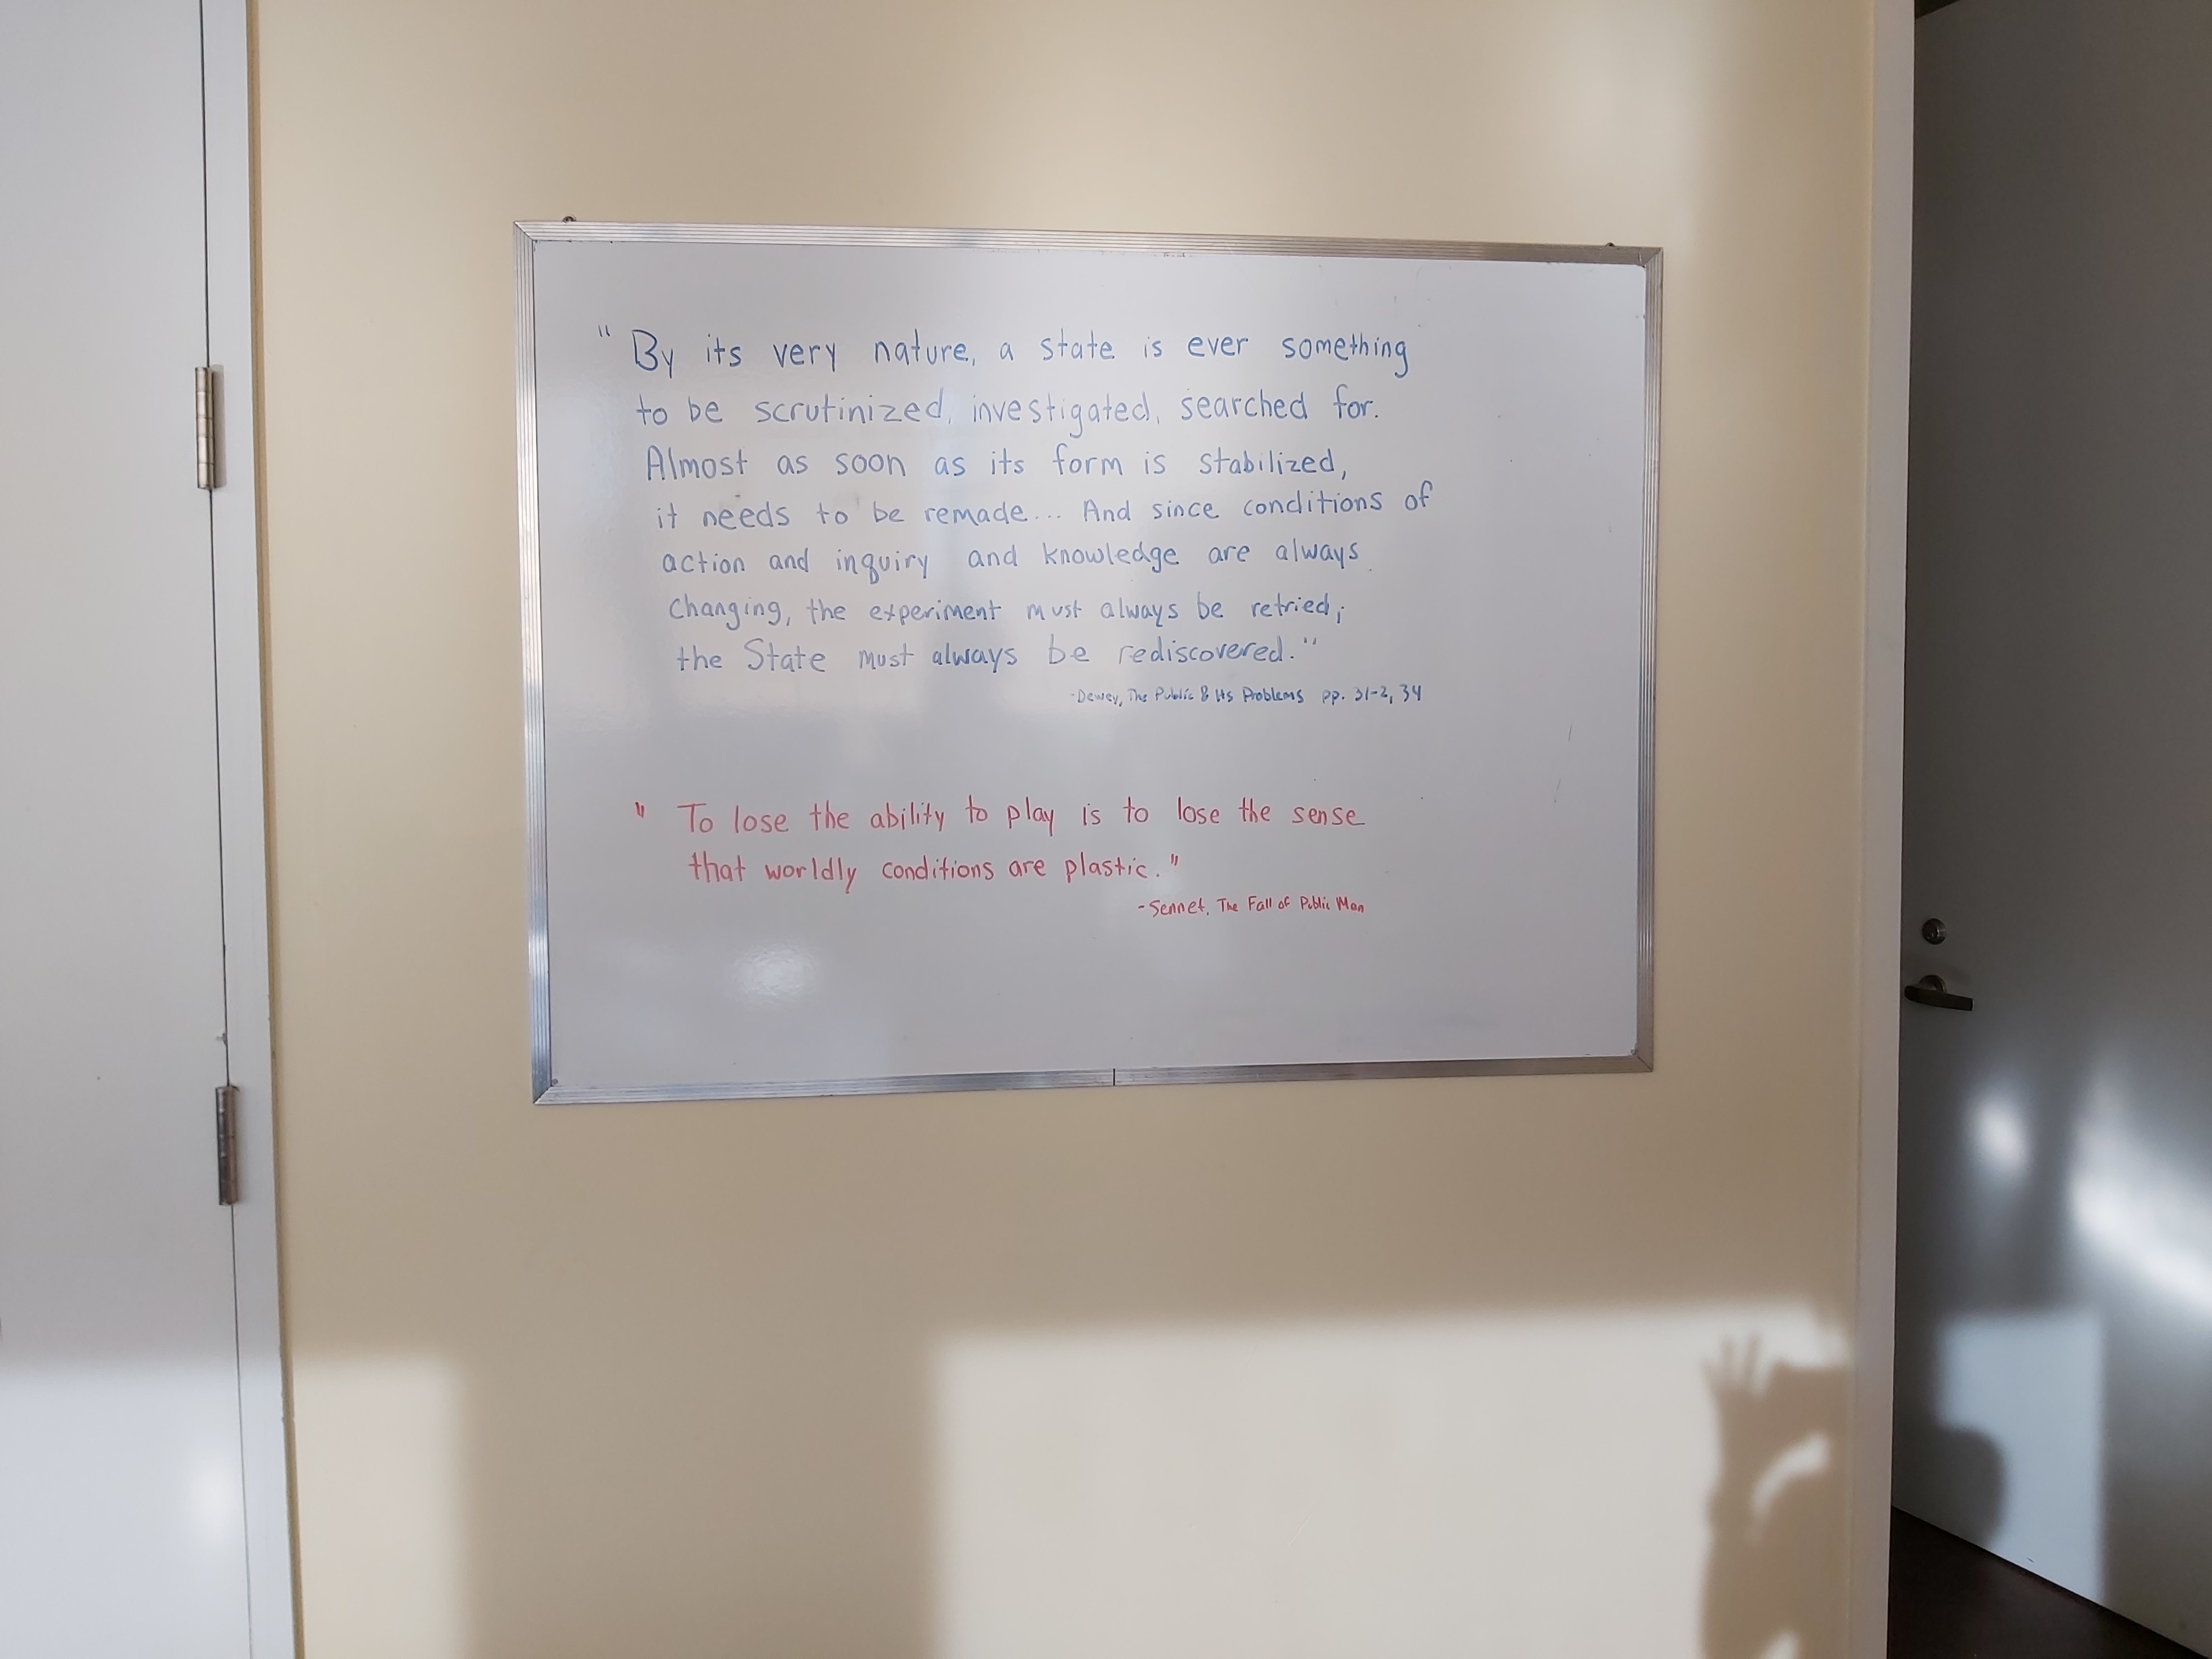 " By its very nature, a state is ever something
to be scrutinized, investigated, searched for.
Almost as soon as its form is stabilized,
it needs to be remade... And since conditions of
action and inquiry and knowledge are always
changing, the experiment must always be retried;
the State must always be rediscovered."
-Dewey, The Public & Its Problems pp. 31-2, 34
" To lose the ability to play is to lose the sense
that worldly conditions are plastic."
-Sennet, The Fall of Public Man